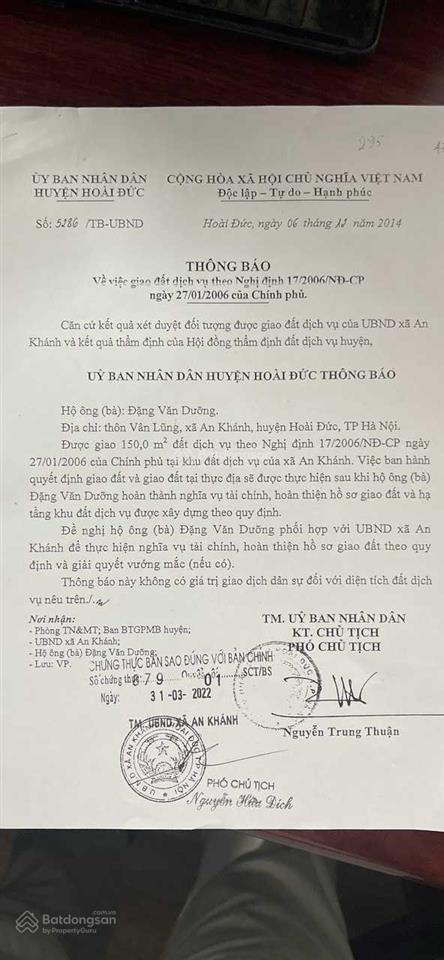 295
ỦY BAN NHÂN DÂN
HUYỆN HOÀI ĐỨC
CỘNG HÒA XÃ HỘI CHỦ NGHĨA VIỆT NAM
Độc lập – Tự do – Hạnh phúc
Số: 5286 /TB-UBND
Hoài Đức, ngày 06 tháng 12 năm 2014
THÔNG BÁO
Về việc giao đất dịch vụ theo Nghị định 17/2006/NĐ-CP
ngày 27/01/2006 của Chính phủ.
Căn cứ kết quả xét duyệt đối tượng được giao đất dịch vụ của UBND xã An
Khánh và kết quả thẩm định của Hội đồng thẩm định đất dịch vụ huyện,
UỶ BAN NHÂN DÂN HUYỆN HOÀI ĐỨC THÔNG BÁO
Hộ ông (bà): Đặng Văn Dưỡng.
Địa chỉ: thôn Vân Lũng, xã An Khánh, huyện Hoài Đức, TP Hà Nội.
Được giao 150,0 m² đất dịch vụ theo Nghị định 17/2006/NĐ-CP ngày
27/01/2006 của Chính phủ tại khu đất dịch vụ của xã An Khánh. Việc ban hành
quyết định giao đất và giao đất tại thực địa sẽ được thực hiện sau khi hộ ông (bà)
Đặng Văn Dưỡng hoàn thành nghĩa vụ tài chính, hoàn thiện hồ sơ giao đất và hạ
tầng khu đất dịch vụ được xây dựng theo quy định.
Đề nghị hộ ông (bà) Đặng Văn Dưỡng phối hợp với UBND xã An
Khánh để thực hiện nghĩa vụ tài chính, hoàn thiện hồ sơ giao đất theo quy
định và giải quyết vướng mắc (nếu có).
Thông báo này không có giá trị giao dịch dân sự đối với diện tích đất dịch
vụ nêu trên./.
Nơi nhận:
- Phòng TN&MT; Ban BTGPMB huyện;
- UBND xã An Khánh;
- Hộ ông (bà) Đặng Văn Dưỡng;
- Lưu: VP.
TM. UỶ BAN NHÂN DÂN
KT. CHỦ TỊCH
PHÓ CHỦ TỊCH
CHỨNG THỰC BẢN SAO ĐÚNG VỚI BẢN CHÍNH
Số chứng thực: 879 Quyển số: 01 SCT/BS
Ngày: 31-03-2022
TM. UBND XÃ AN KHÁNH
Nguyễn Trung Thuận
PHÓ CHỦ TỊCH
Nguyễn Hữu Đích
Batdongsan
by PropertyGuru